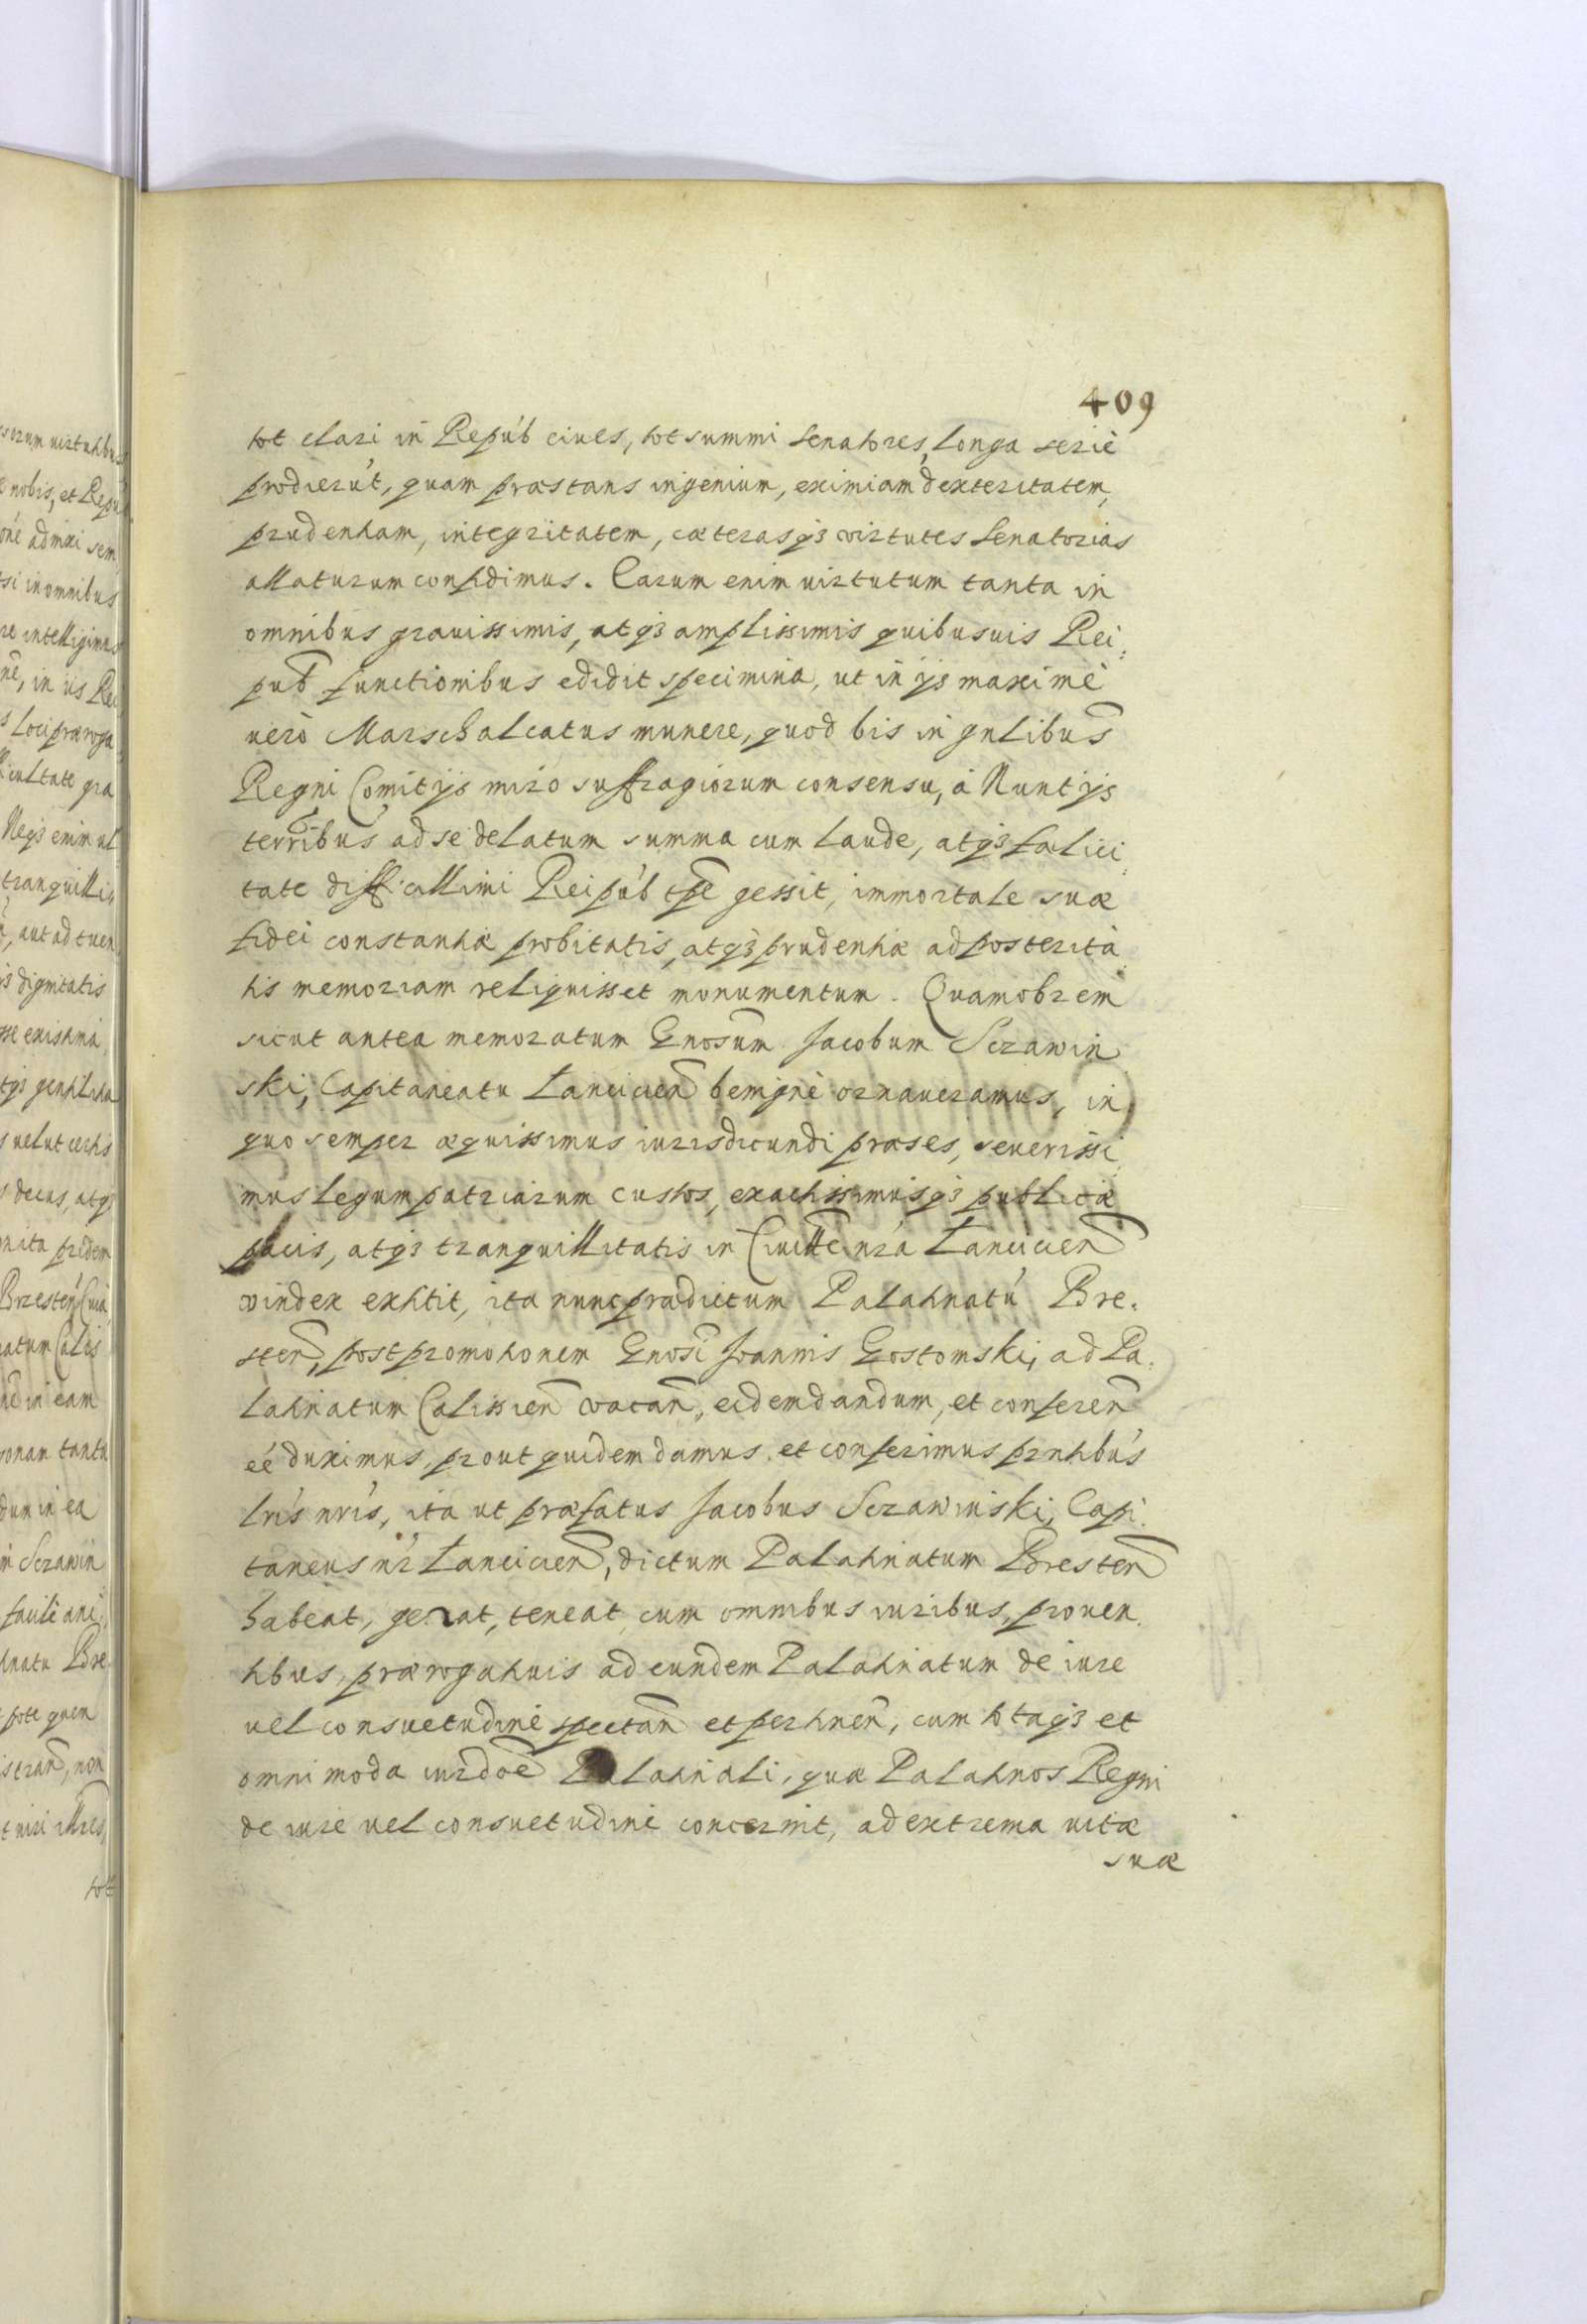 409
tot clari in Repub ciues, tot summi Senatores, longa serie
prodierut, quam præstans ingenium, eximiam dexteritatem,
prudentiam, integritatem, cæterasq3 virtutes Senatorias
allaturum confidimus. Earum enim uirtutum tanta in
omnibus grauissimis, atq3 amplissimis quibusuis Rei:
pub functionibus edidit specimina, ut in ijs maxime
uero Marschalcatus munere, quod bis in gnlibus
Regni Comitijs miro suffragiorum consensu, a Nuntijs
terribus ad se delatum summa cum laude, atq3 fælici:
tate difficillimi Reipub tpe gessit, immortale suæ
fidei constantiæ probitatis, atq3 prudentiæ ad posterita:
tis memoriam reliquisset monumentum. Quamobrem
sicut antea memoratum Gnosum Jacobum Sczawin
ski, Capitaneatu Lancicien benigne ornaueramus, in
quo semper æquissimus iurisdicundi præses, seuerissi
mus legum patriarum custos, exactissimusq3 publicæ
pacis, atq3 tranquillitatis in Ciuitte nra Lancicien
vindex extitit, ita nunc prædictum Palatinatu Bre:
sten, post promotionem Gnosi Joannis Gostomski, ad Pa:
latinatum Calissien vacan, eidem dandum, et conferen
ee duximus, prout quidem damus et conferimus prntibus
lris nris, ita ut præfatus Jacobus Sczawinski, Capi:
taneus nr Lancicien, dictum Palatinatum Bresten
habeat, gerat, teneat cum omnibus iuribus, prouen
tibus, prærogatiuis ad eundem Palatinatum de iure
uel consuetudine spectan et pertinen, cum totaq3 et
omnimoda iurdoe Palatinali, quæ Palatinos Regni
de iure uel consuetudine concernit, ad extrema uitæ
suæ